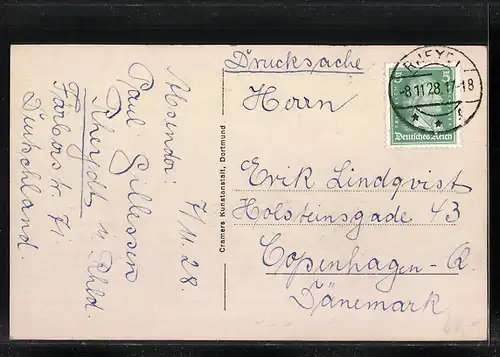 Absender: 7/11.28.
Paul Gillessen
Rheydt
Rhld.
Färberstr. 71.
Deutschland.
Cramers Kunstanstalt, Dortmund
Drucksache
Herrn
Erik Lindqvist
Holsteinsgade 43
Copenhagen-Ø.
Dänemark
RHEYDT
-8.11.28.17-18
5
Deutsches Reich